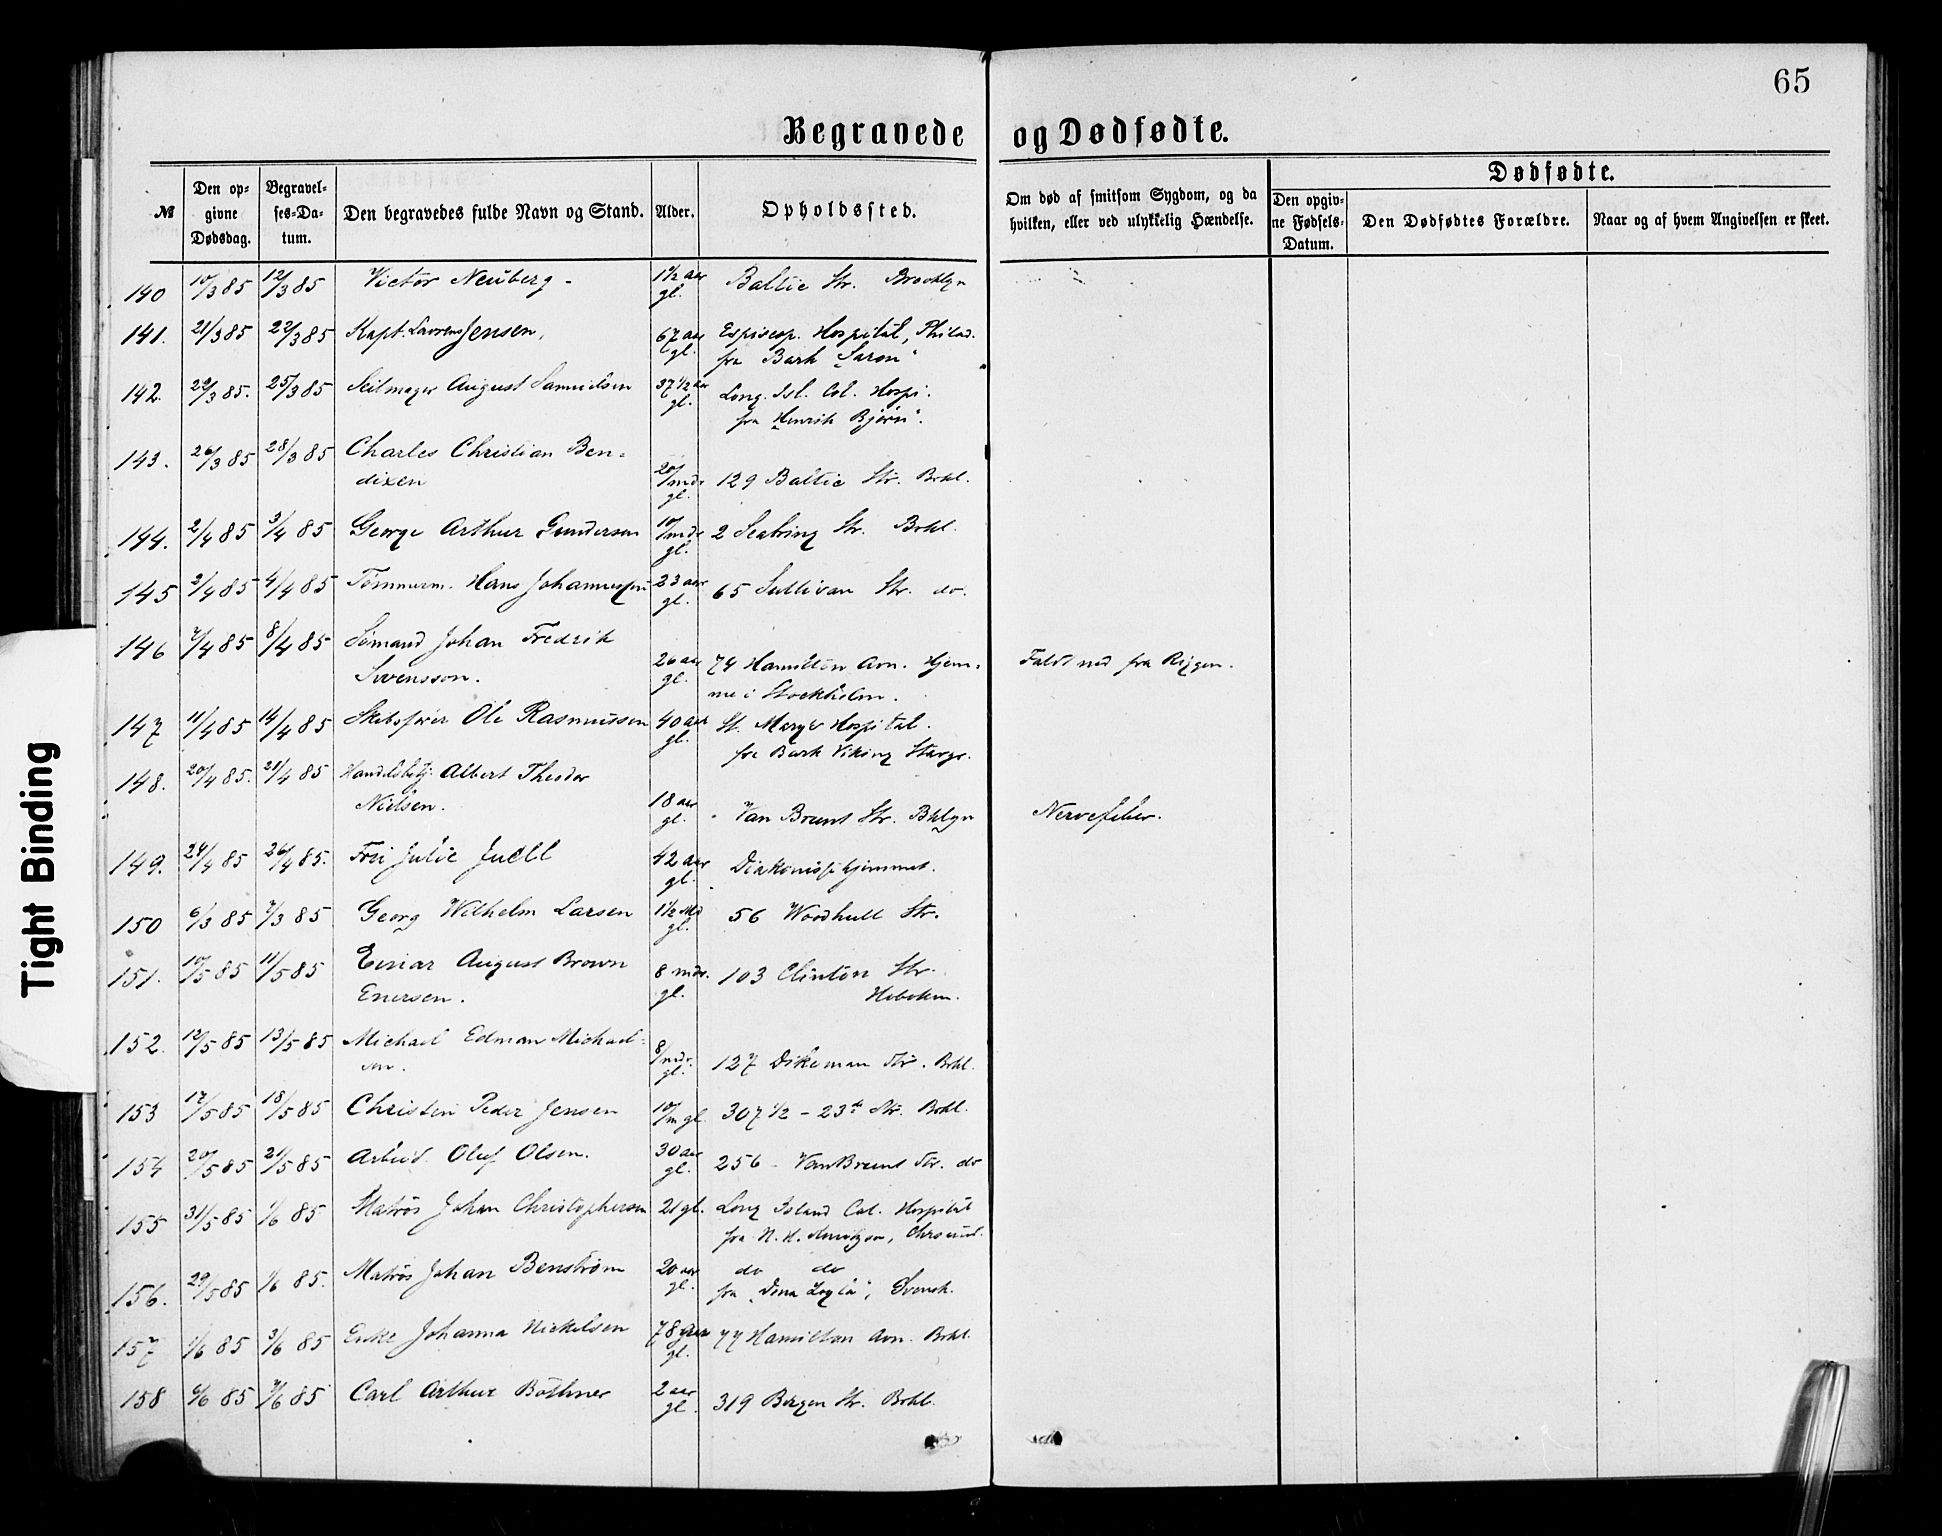 65
Begravede og Dødfødte.
№
Den op-
givne
Dødsdag.
Begravel-
ses-Da-
tum.
Den begravedes fulde Navn og Stand.
Alder.
Opholdssted.
Om død af smitsom Sygdom, og da
hvilken, eller ved ulykkelig Hændelse.
Dødfødte.
Den opgiv-
ne Fødsels-
Datum.
Den Dødfødtes Forældre.
Naar og af hvem Angivelsen er skeet.
140 10/3 85 12/3 85 Victor Neuberg - 1½ aar Baltic Str. Brooklyn
gl.
141. 21/3 85 22/3 85 Kapt. Laurens Jensen, 67 aar Espiscop. Hospital, Philad.
gl. fra Bark „Saron"
142. 22/3 85. 25/3 85 Seilmager August Samuelsen 37½ aar Long. Isl. Col. Hospi.
gl. fra „Henrik Bjørn".
143. 26/3 85 28/3 85 Charles Christian Ben-
dixen 20/mdr 129 Baltic Str. Bokl.
gl.
144. 2/4 85 3/4 85 George Arthur Gundersen 10/mdr 2 Seabring Str. Bokl.
gl.
145 2/4 85 4/4 85 Tømmerm. Hans Johannessen 23 aar 65 Sullivan Str. do.
gl.
146 7/4 85 8/4 85 Sømand Johan Fredrik
Svensson. 26 aar 74 Hamilton Avn. Hjem- Faldt ned fra Riggen.
gl. me i Stockholm.
147 11/4 85 14/4 85 Skibsfører Ole Rasmussen 40 aar St. Mary's Hospital.
gl. fra Bark Viking Stavgr.
148. 20/4 85. 21/4 85 Handelsbetj. Albert Theodor
Nielsen. 18 aar Van Brunt Str. Bklyn Nervefeber.
gl.
149. 24/4 85 26/4 85. Fru Julie Juell 42 aar Diakonissehjemmet.
gl.
150 6/3 85 7/3 85 Georg Wilhelm Larsen 1½ Md 56 Woodhull Str.
gl.
151. 10/5 85 11/5 85 Einar August Brown 8 mdr. 103 Clinton Str.
Enersen. gl. Hoboken.
152. 12/5 85 13/5 85 Michael Edman Michael-
sen. 8/mdr. 127 Dikeman Str. Bokl.
gl.
153 17/5 85 18/5 85 Christen Peder Jensen 10/m gl. 307½ - 23de Str. Bokl.
154 20/5 85 21/5 85 Arbeid. Oluf Olsen. 30 aar 256 - VanBrunt Str. do
gl.
155 31/5 85 1/6 85 Matros Johan Christophersen 21 gl. Long Island Col. Hospital
fra N. H.
156. 29/5 85 1/6 85. Matros Johan Benstrøm 20 aar do do
gl. fra Svensk.
157 1/6 85 3/6 85 Enke Johanna Nickelsen 78 Aar 77 Hamilton Avn. Bokl.
gl.
158 6/6 85 7/6 85 Carl Arthur Bothner 2 aar 319 Bergen Str. Bokl.
gl.
Tight Binding